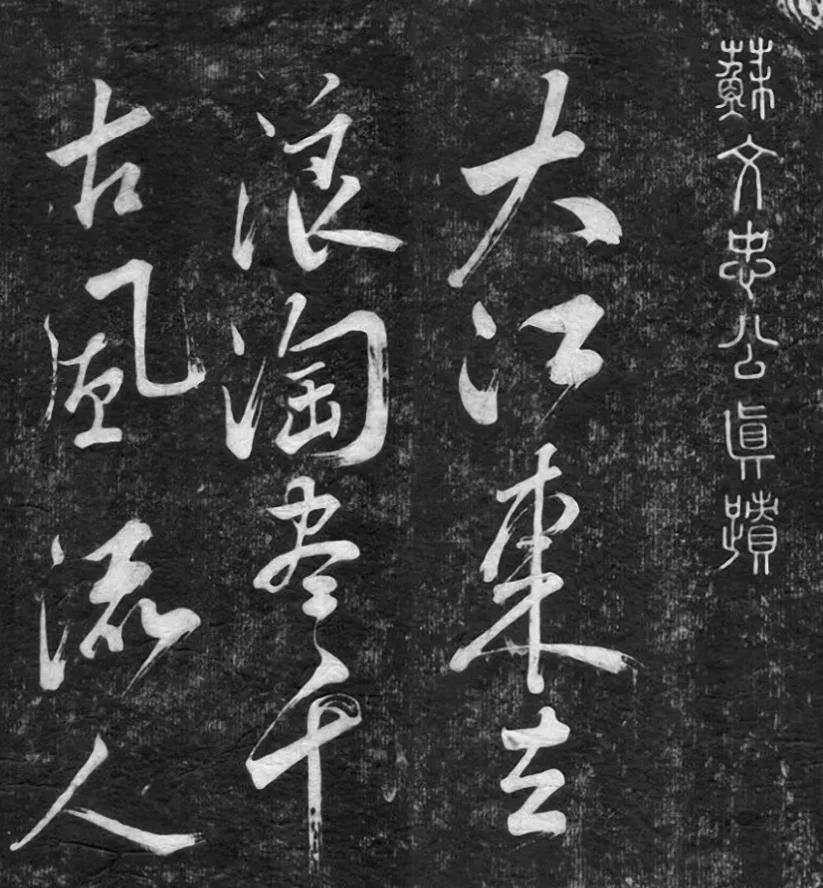 蘇文忠公眞蹟
大江東去
浪淘盡千
古風流人